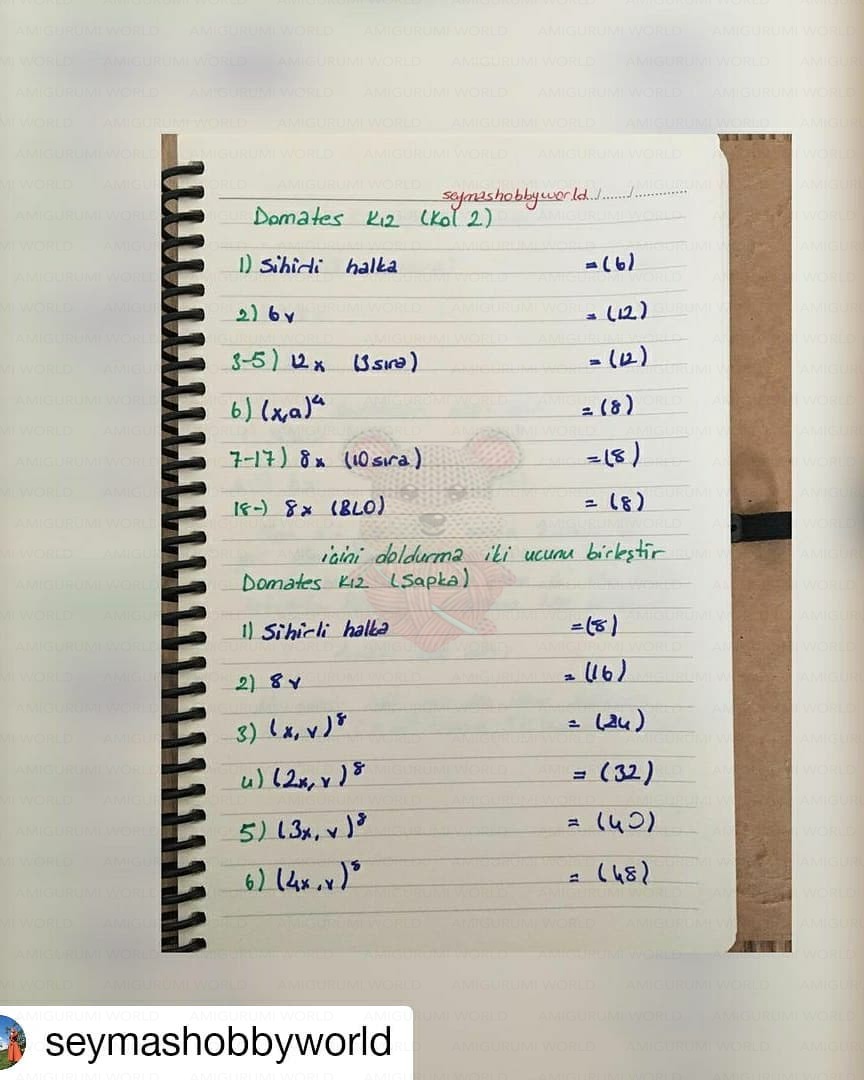 seymashobbyworld../......./...............
Domates Kız (Kol 2)
1) Sihirli halka =(6)
2) 6v = (12)
3-5) 12x (3 sıra) = (12)
6) (x,a)⁴ = (8)
7-17) 8x (10 sıra) =(8)
18-) 8x (BLO) = (8)
içini doldurma iki ucunu birleştir
Domates Kız (Şapka)
1) Sihirli halka =(8)
2) 8v = (16)
3) (x, v)⁸ = (24)
4) (2x, v)⁸ = (32)
5) (3x, v)⁸ = (40)
6) (4x, v)⁸ = (48)
AMIGURUMI WORLD
seymashobbyworld